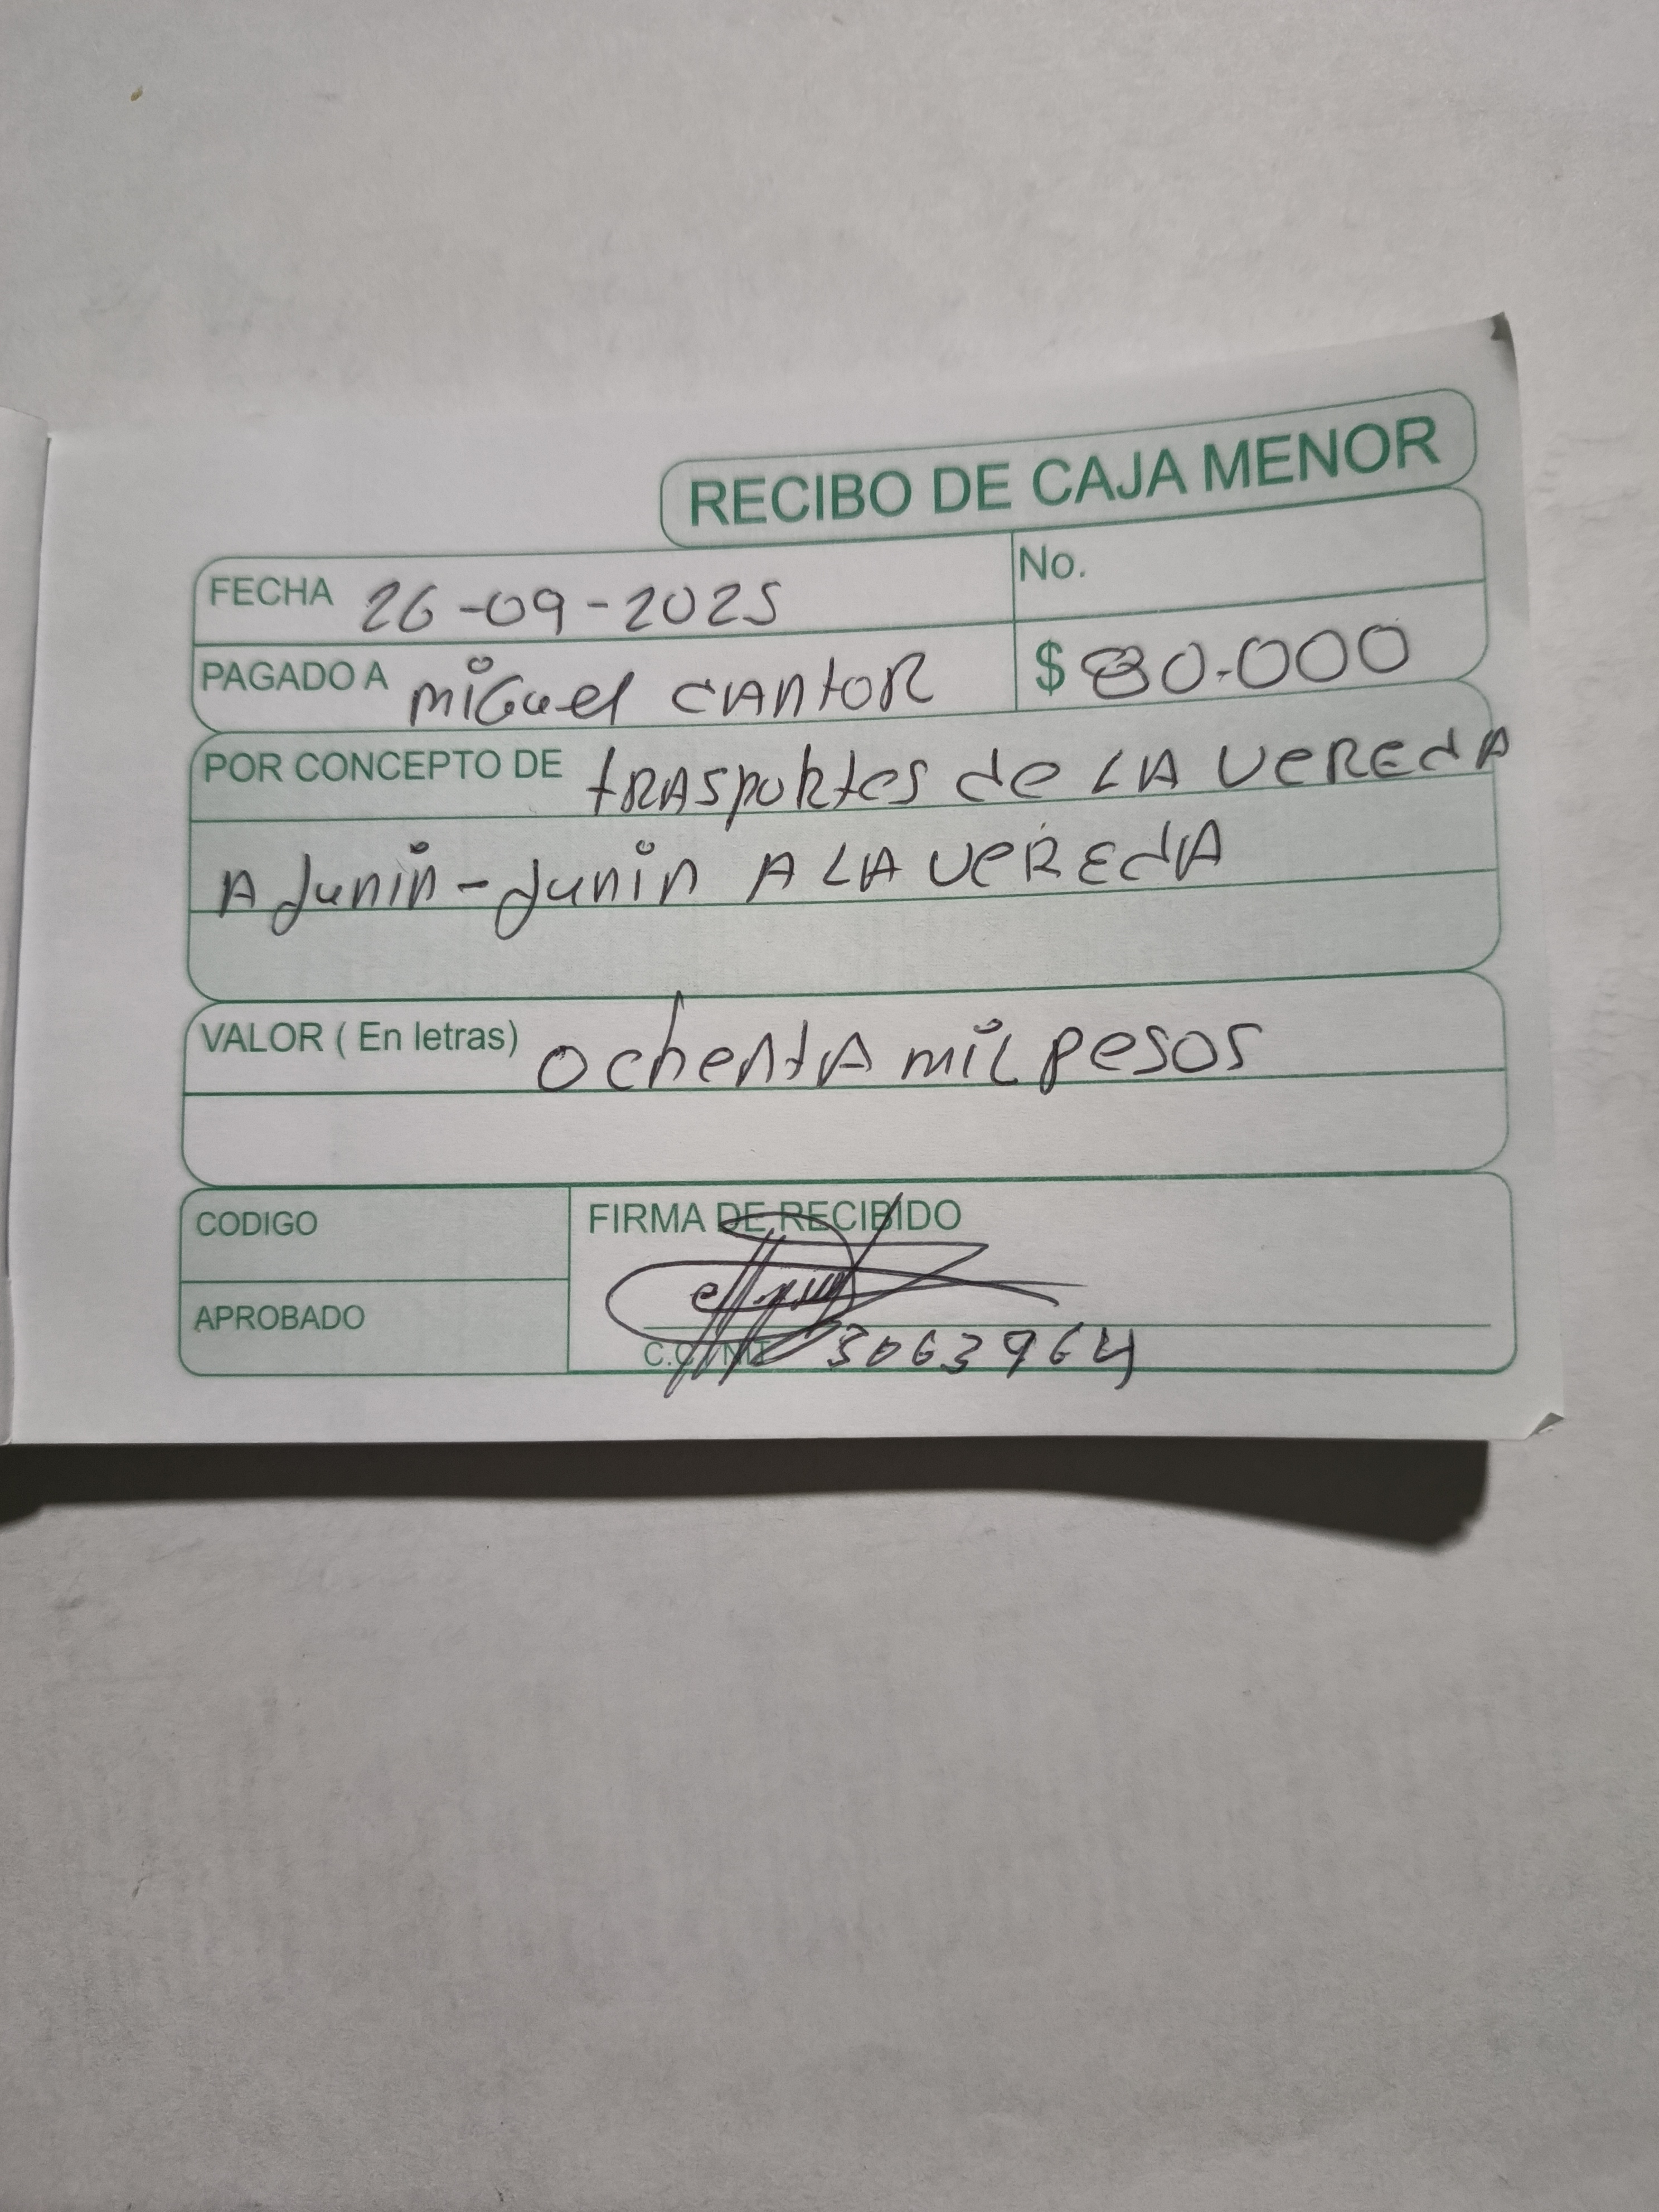 RECIBO DE CAJA MENOR
FECHA 26-09-2025
No.
PAGADO A miGuel CANtoR
$ 80.000
POR CONCEPTO DE tRAspoRtes de LA VeREdA
A Junin - Junin A LA VeREdA
VALOR ( En letras) OchentA miL pesos
CODIGO
FIRMA DE RECIBIDO
APROBADO
3063964